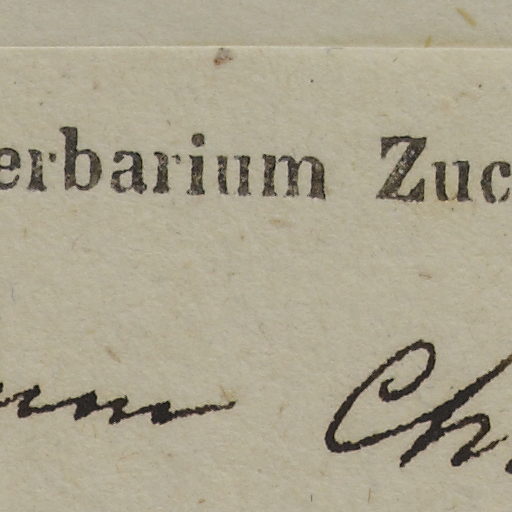 erbarium Zuc
um Ch